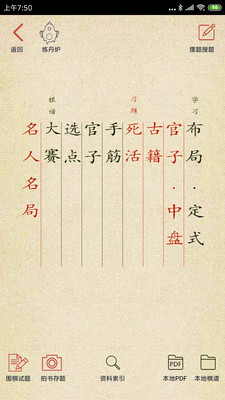 上午7:50
返回
炼丹炉
摆题搜题
学习
布局·定式
官子·中盘
古籍
习题
死活
手筋
官子
选点
棋谱
大赛
名人名局
围棋试题
拍书存题
资料索引
PDF
本地PDF
本地棋谱